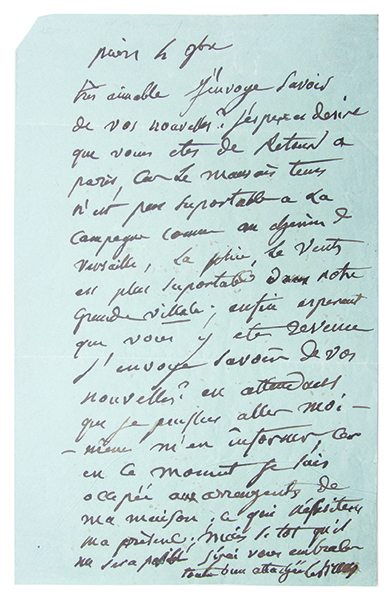 très aimable J'envoye Savoir
de vos nouvelles? J'espere et desire
que vous etes de Retour a
paris, Car Le mauvais temps
n'est pas suportable a La
Campagne comme au chemin de
Versaille, La pluie, Le vents
est plus suportable dans notre
grande ville; enfin esperent
que vous y etes Revenue
J'envoye Savoir de vos
nouvelles? en attendant
que je puisse aller moi-
-même m'en informer, Car
en ce moment je suis
occupée aux arrengents de
ma maison; a qui
ma présence; Mais si tot qu'il
me sera possible j'irai vous embrasser
toute